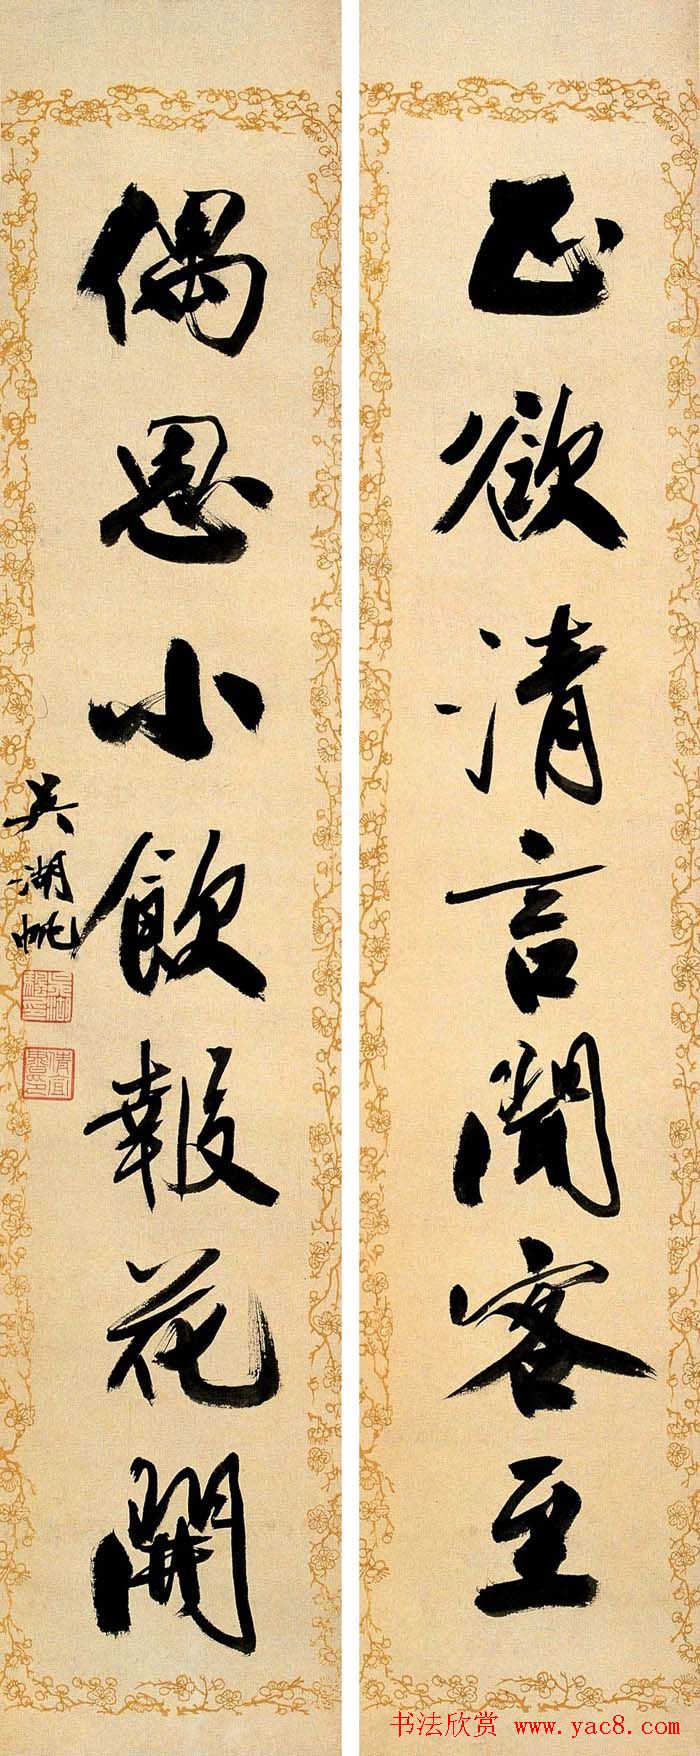 正欲清言聞客至
偶思小飲報花開
吳湖帆
书法欣赏 www.yac8.com